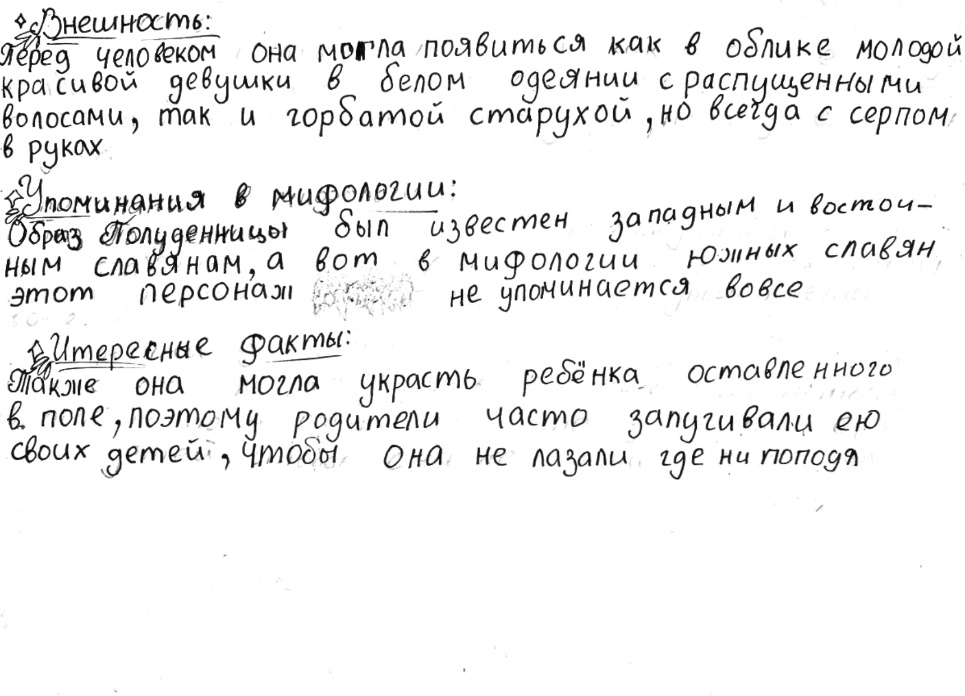 Внешность:
Перед человеком она могла появиться как в облике молодой
красивой девушки в белом одеянии с распущенными
волосами, так и горбатой старухой, но всегда с серпом
в руках
Упоминания в мифологии:
Образ Полуденницы был известен западным и восточ-
ным славянам, а вот в мифологии южных славян
этот персонаж не упоминается вовсе
Итересные факты:
Также она могла украсть ребёнка оставленного
в поле, поэтому родители часто запугивали ею
своих детей, чтобы она не лазали где ни поподя